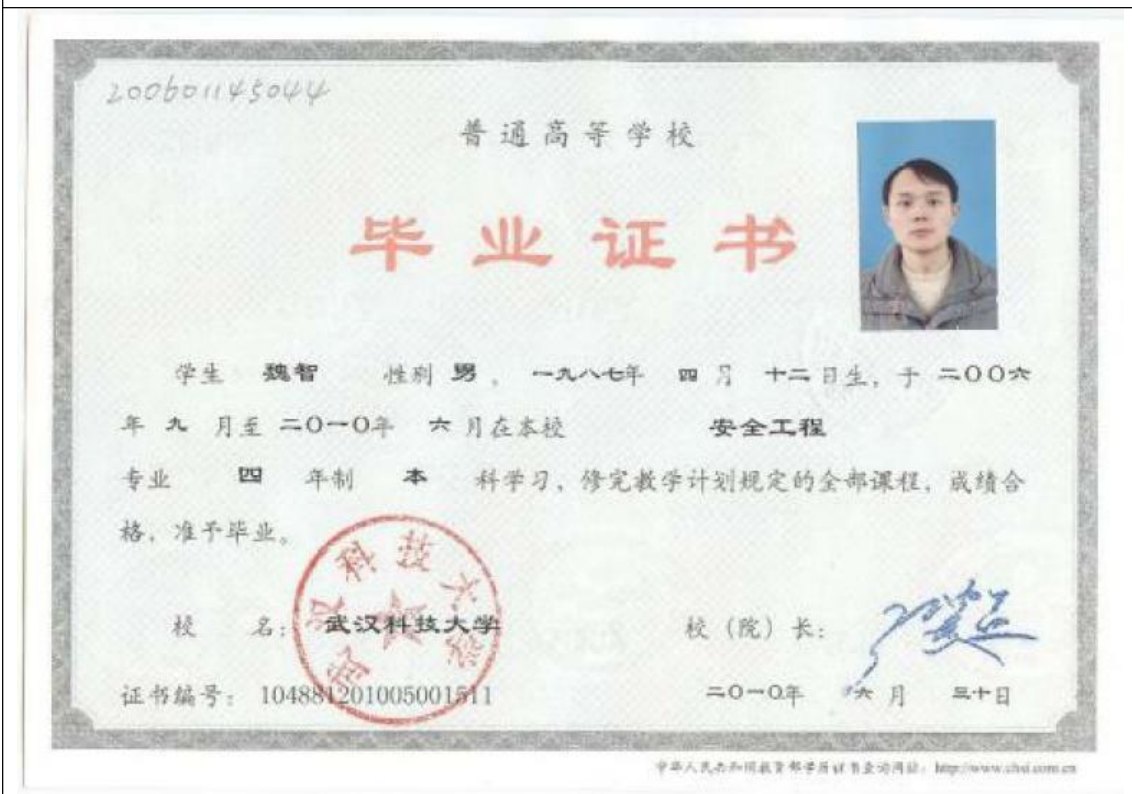 200601145044
普通高等学校
毕业证书
学生 魏智 性别 男 , 一九八七年 四 月 十二 日生, 于 二〇〇六
年 九 月至 二〇一〇年 六 月在本校 安全工程
专业 四 年制 本 科学习, 修完教学计划规定的全部课程, 成绩合
格, 准予毕业。
武汉科技大学
校 名: 武汉科技大学 校（院）长:
证书编号: 104881201005001511 二〇一〇年 六 月 三十日
中华人民共和国教育部学历证书查询网站: http://www.chsi.com.cn